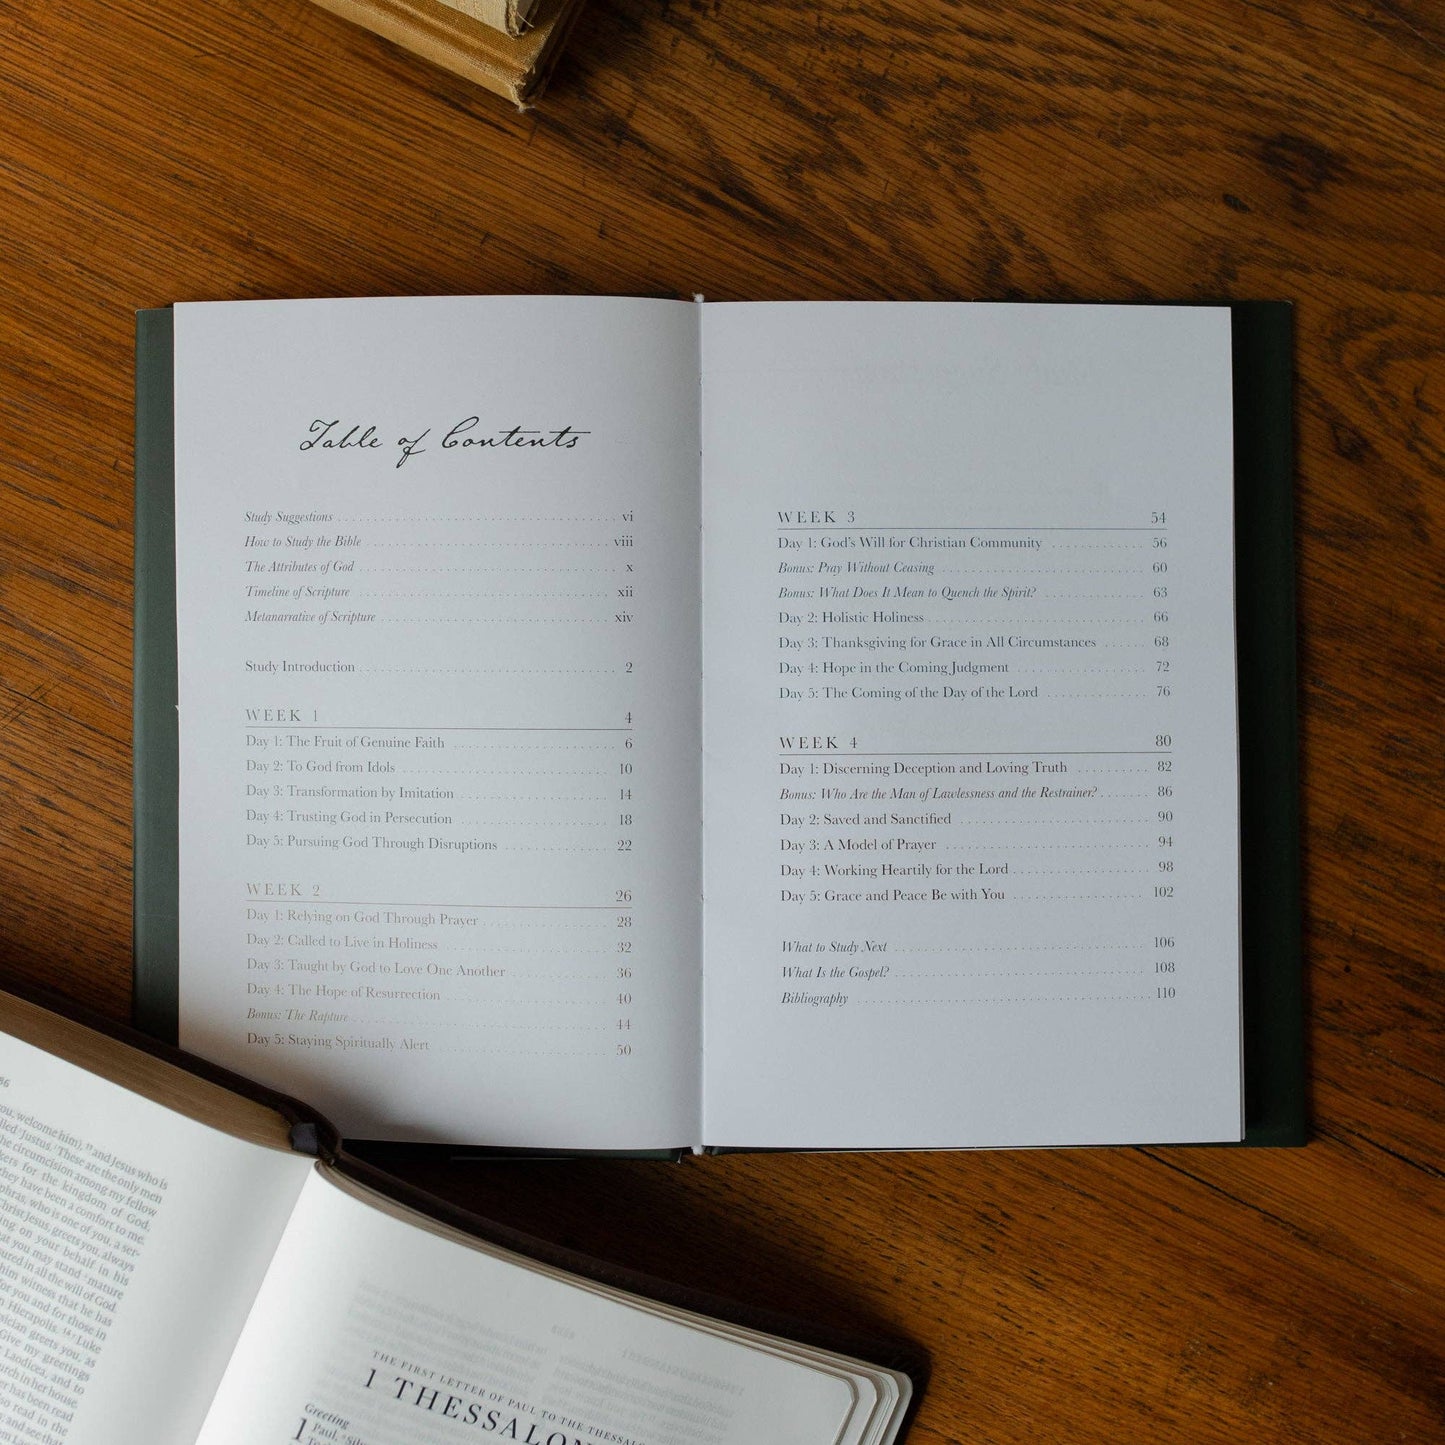 Table of Contents
Study Suggestions vi
How to Study the Bible viii
The Attributes of God x
Timeline of Scripture xii
Metanarrative of Scripture xiv
Study Introduction 2
WEEK 1 4
Day 1: The Fruit of Genuine Faith 6
Day 2: To God from Idols 10
Day 3: Transformation by Imitation 14
Day 4: Trusting God in Persecution 18
Day 5: Pursuing God Through Disruptions 22
WEEK 2 26
Day 1: Relying on God Through Prayer 28
Day 2: Called to Live in Holiness 32
Day 3: Taught by God to Love One Another 36
Day 4: The Hope of Resurrection 40
Bonus: The Rapture 44
Day 5: Staying Spiritually Alert 50
WEEK 3 54
Day 1: God's Will for Christian Community 56
Bonus: Pray Without Ceasing 60
Bonus: What Does It Mean to Quench the Spirit? 63
Day 2: Holistic Holiness 66
Day 3: Thanksgiving for Grace in All Circumstances 68
Day 4: Hope in the Coming Judgment 72
Day 5: The Coming of the Day of the Lord 76
WEEK 4 80
Day 1: Discerning Deception and Loving Truth 82
Bonus: Who Are the Man of Lawlessness and the Restrainer? 86
Day 2: Saved and Sanctified 90
Day 3: A Model of Prayer 94
Day 4: Working Heartily for the Lord 98
Day 5: Grace and Peace Be with You 102
What to Study Next 106
What Is the Gospel? 108
Bibliography 110
you, welcome him), and Jesus who is
called Justus. These are the only men
the circumcision among my fellow
for the kingdom of God,
they have been a comfort to me.
who is one of you, a ser-
Christ Jesus, greets you, always
on your behalf in his
that you may stand mature
in all the will of God.
him witness that he has
for you and for those in
Hierapolis. Luke
greets you, as
Give my greetings
Laodicea, and to
in her house
has been read
read in the
and see that
THE FIRST LETTER OF PAUL TO THE
1
Greeting
1 Paul,